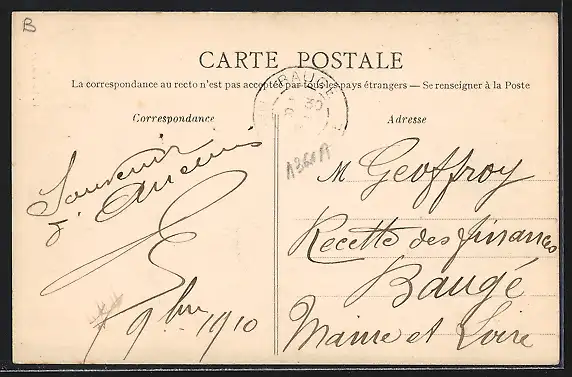 B
CARTE POSTALE
La correspondance au recto n'est pas acceptée par tous les pays étrangers — Se renseigner à la Poste
Correspondance
Adresse
BAUGÉ
30
Souvenir
d'Ancenis
9bre 1910
M Geoffroy
Recette des finances
Baugé
Maine et Loire